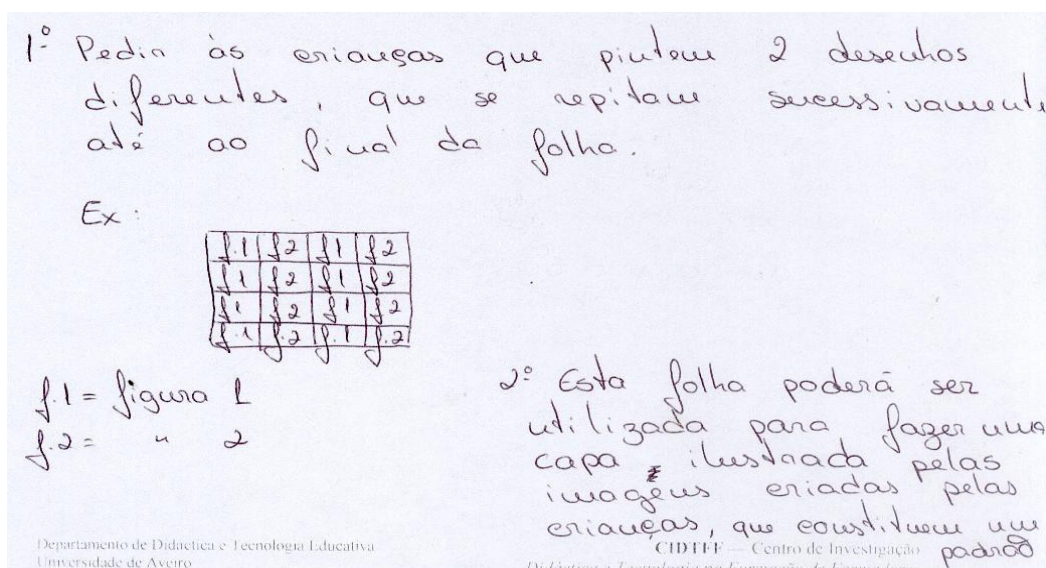 1º Pedir às crianças que pintem 2 desenhos
diferentes, que se repitam sucessivamente
até ao final da folha.
Ex:
f.1 f2 f1 f2
f1 f2 f1 f2
f1 f2 f1 f2
f.1 f.2 f.1 f.2
f.1 = figura 1
f.2 = " 2
2º Esta folha poderá ser
utilizada para fazer uma
capa ilustrada pelas
imagens criadas pelas
crianças, que constituem um
padrão
Departamento de Didáctica e Tecnologia Educativa
Universidade de Aveiro
CIDTFF — Centro de Investigação
Didáctica e Tecnologia na Formação de Formadores